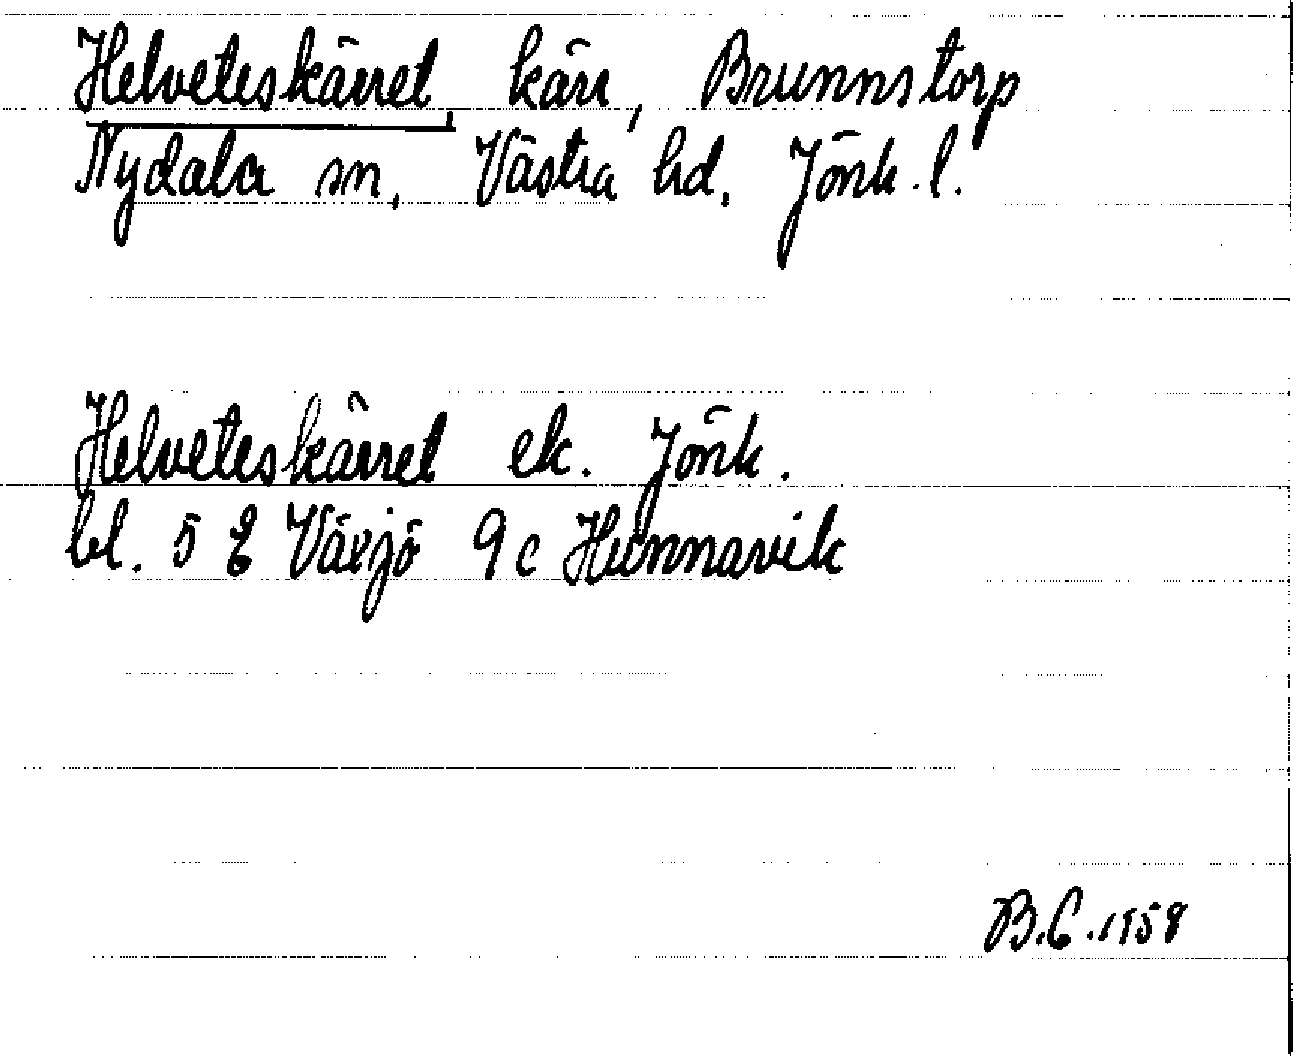 Helveteskärret, kärr, Brunnstorp
Nydala sn, Västra hd, Jönk. l.
Helveteskärret ek. Jönk.
bl. 5 E Växjö 9c Hunnavik
B.C. 1958